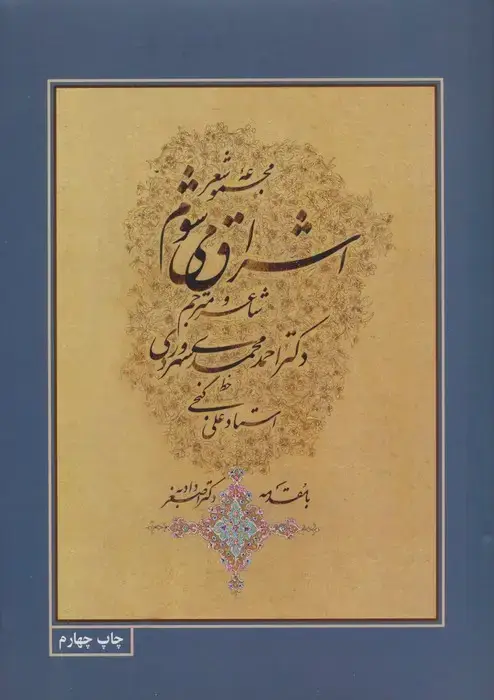 مجموعه شعر
اشراق می شوم
شاعر و مترجم
دکتر احمد محمدی سهروردی
خط
استاد علی گنجی
با مقدمه
دکتر اصغر دادبه
چاپ چهارم